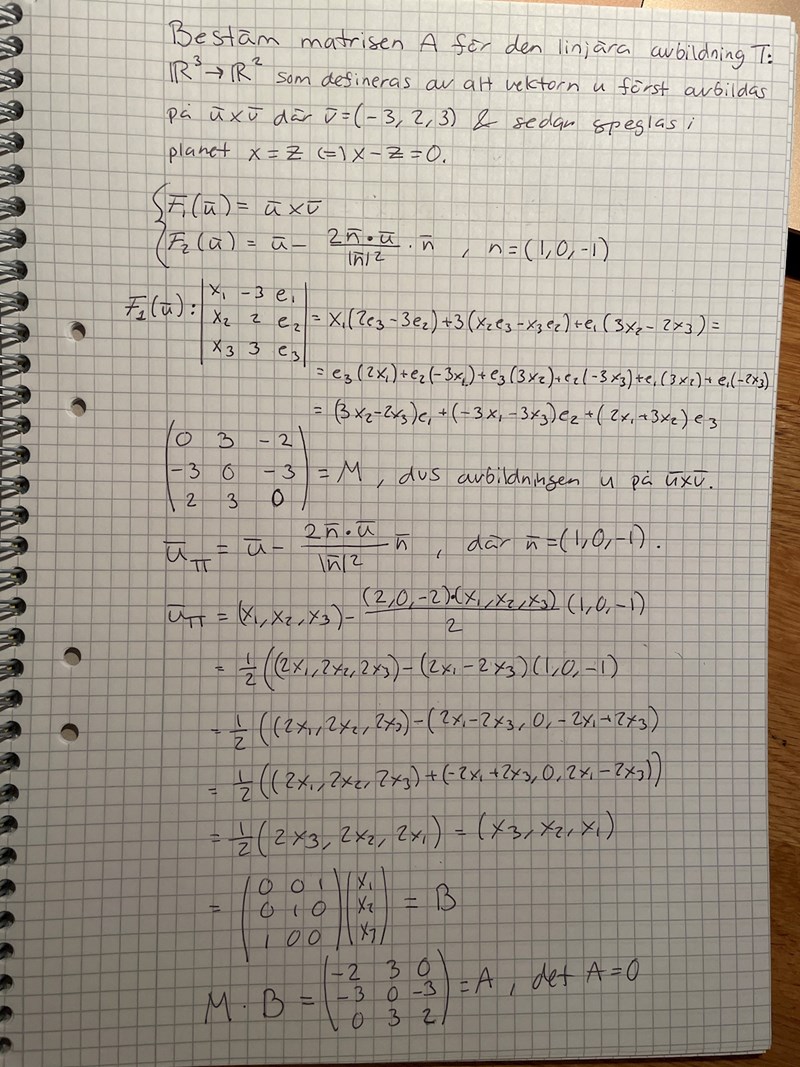 Bestäm matrisen A för den linjära avbildning T:
ℝ³→ℝ² som defineras av att vektorn u först avbildas
på ū×v̄ där v̄=(-3,2,3) & sedan speglas i
planet x=z (=) x-z=0.
{ F̄₁(ū) = ū×v̄
F̄₂(ū) = ū - 2n̄•ū/|n̄|² · n̄ , n=(1,0,-1)
F̄₁(ū): | x₁ -3 e₁ |
| x₂ 2 e₂ | = x₁(2e₃-3e₂)+3(x₂e₃-x₃e₂)+e₁(3x₂-2x₃)=
| x₃ 3 e₃ |
= e₃(2x₁)+e₂(-3x₁)+e₃(3x₂)+e₂(-3x₃)+e₁(3x₂)+e₁(-2x₃)
= (3x₂-2x₃)e₁+(-3x₁-3x₃)e₂+(2x₁+3x₂)e₃
( 0 3 -2 )
( -3 0 -3 ) = M, dvs avbildningen u på ū×v̄.
( 2 3 0 )
ū_π = ū - 2n̄•ū/|n̄|² n̄ , där n̄=(1,0,-1).
ū_π = (x₁,x₂,x₃) - (2,0,-2)•(x₁,x₂,x₃)/2 (1,0,-1)
= 1/2 ((2x₁,2x₂,2x₃)-(2x₁-2x₃)(1,0,-1)
= 1/2 ((2x₁,2x₂,2x₃)-(2x₁-2x₃,0,-2x₁+2x₃)
= 1/2 ((2x₁,2x₂,2x₃)+(-2x₁+2x₃,0,2x₁-2x₃))
= 1/2 (2x₃,2x₂,2x₁) = (x₃,x₂,x₁)
( 0 0 1 ) ( x₁ )
= ( 0 1 0 ) ( x₂ ) = B
( 1 0 0 ) ( x₃ )
( -2 3 0 )
M·B = ( -3 0 -3 ) = A, det A=0
( 0 3 2 )